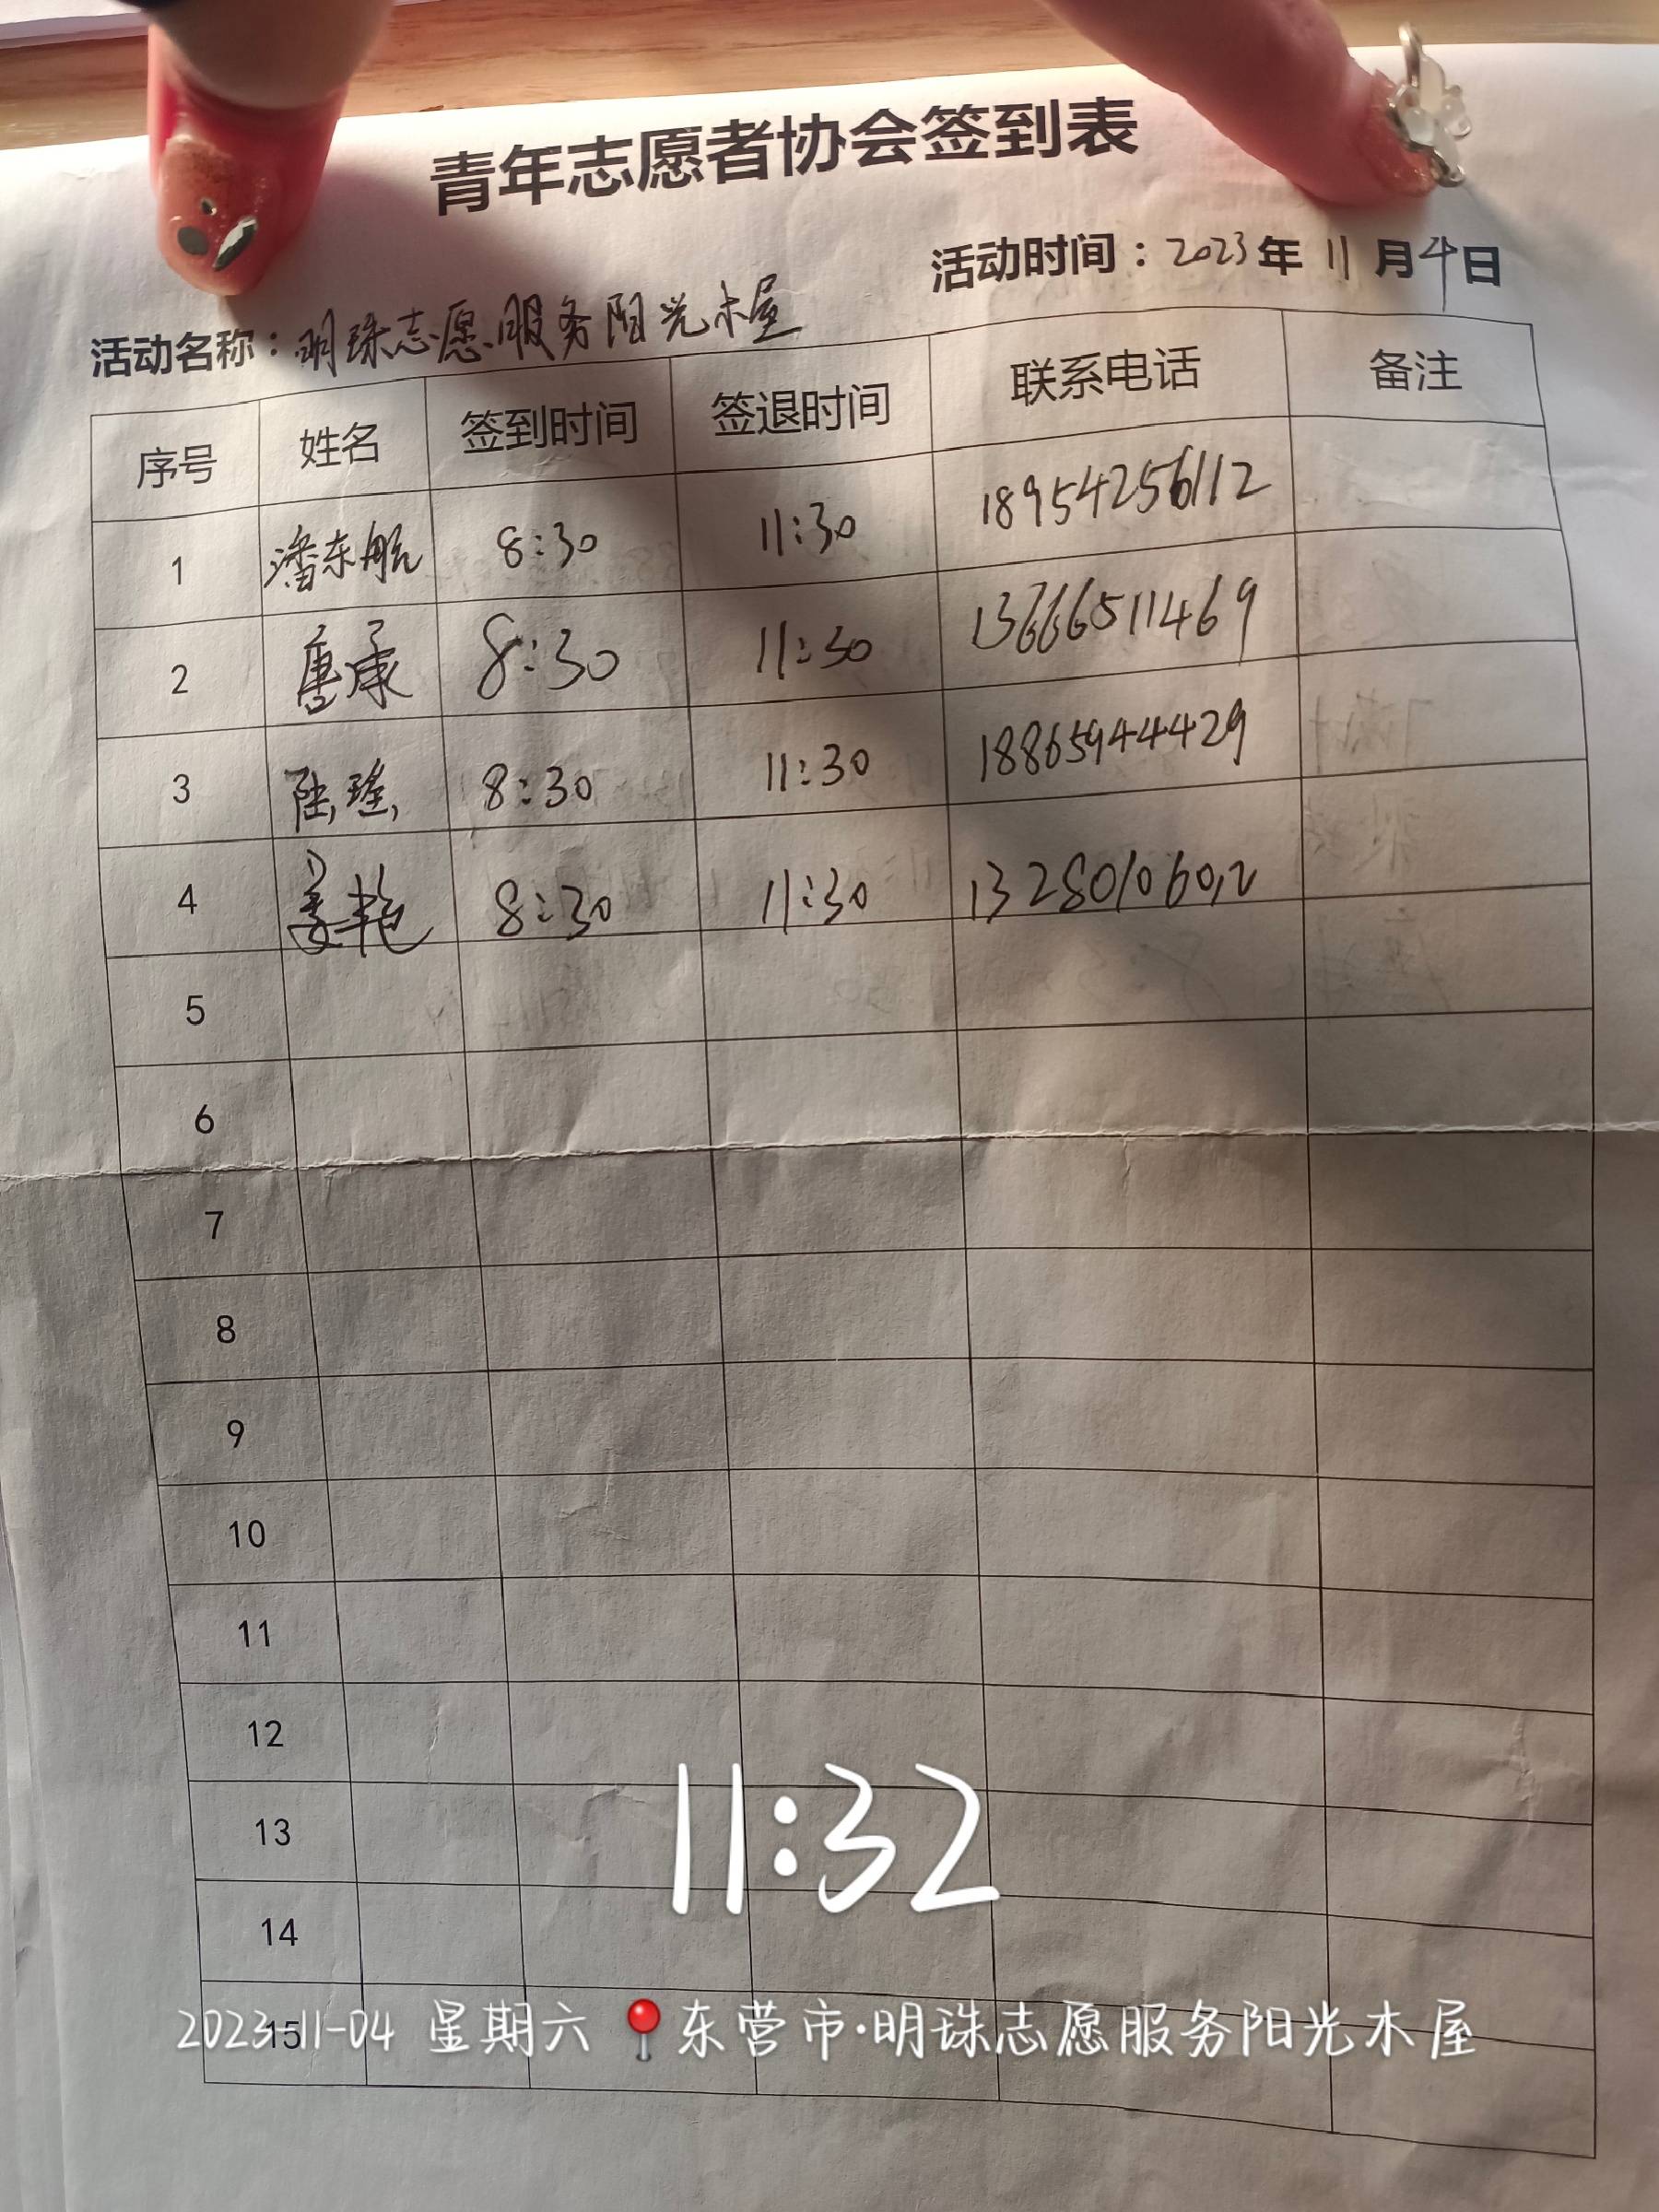 青年志愿者协会签到表
活动时间：2023年11月4日
活动名称：明珠志愿服务阳光木屋
序号 姓名 签到时间 签退时间 联系电话 备注
1 潘东航 8:30 11:30 18954256112
2 唐承 8:30 11:30 13666511469
3 陆瑶 8:30 11:30 18865944429
4 姜艳 8:30 11:30
5
6
7
8
9
10
11
12
13
14
15
11:32
2023-11-04 星期六 东营市·明珠志愿服务阳光木屋